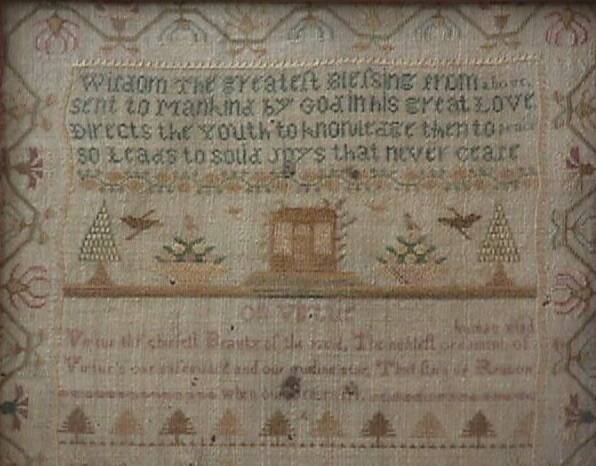 Wisdom the greatest Blessing from above,
sent to Mankind by God in his great Love
Directs the Youth to knowledge then to peace
so Leads to solid Joys that never cease
On Virtue
human mind
Virtue the chiefest Beauty of the mind, The noblest ornament of
Virtue's our safeguard and our guiding star, That stirs up Reason
when our